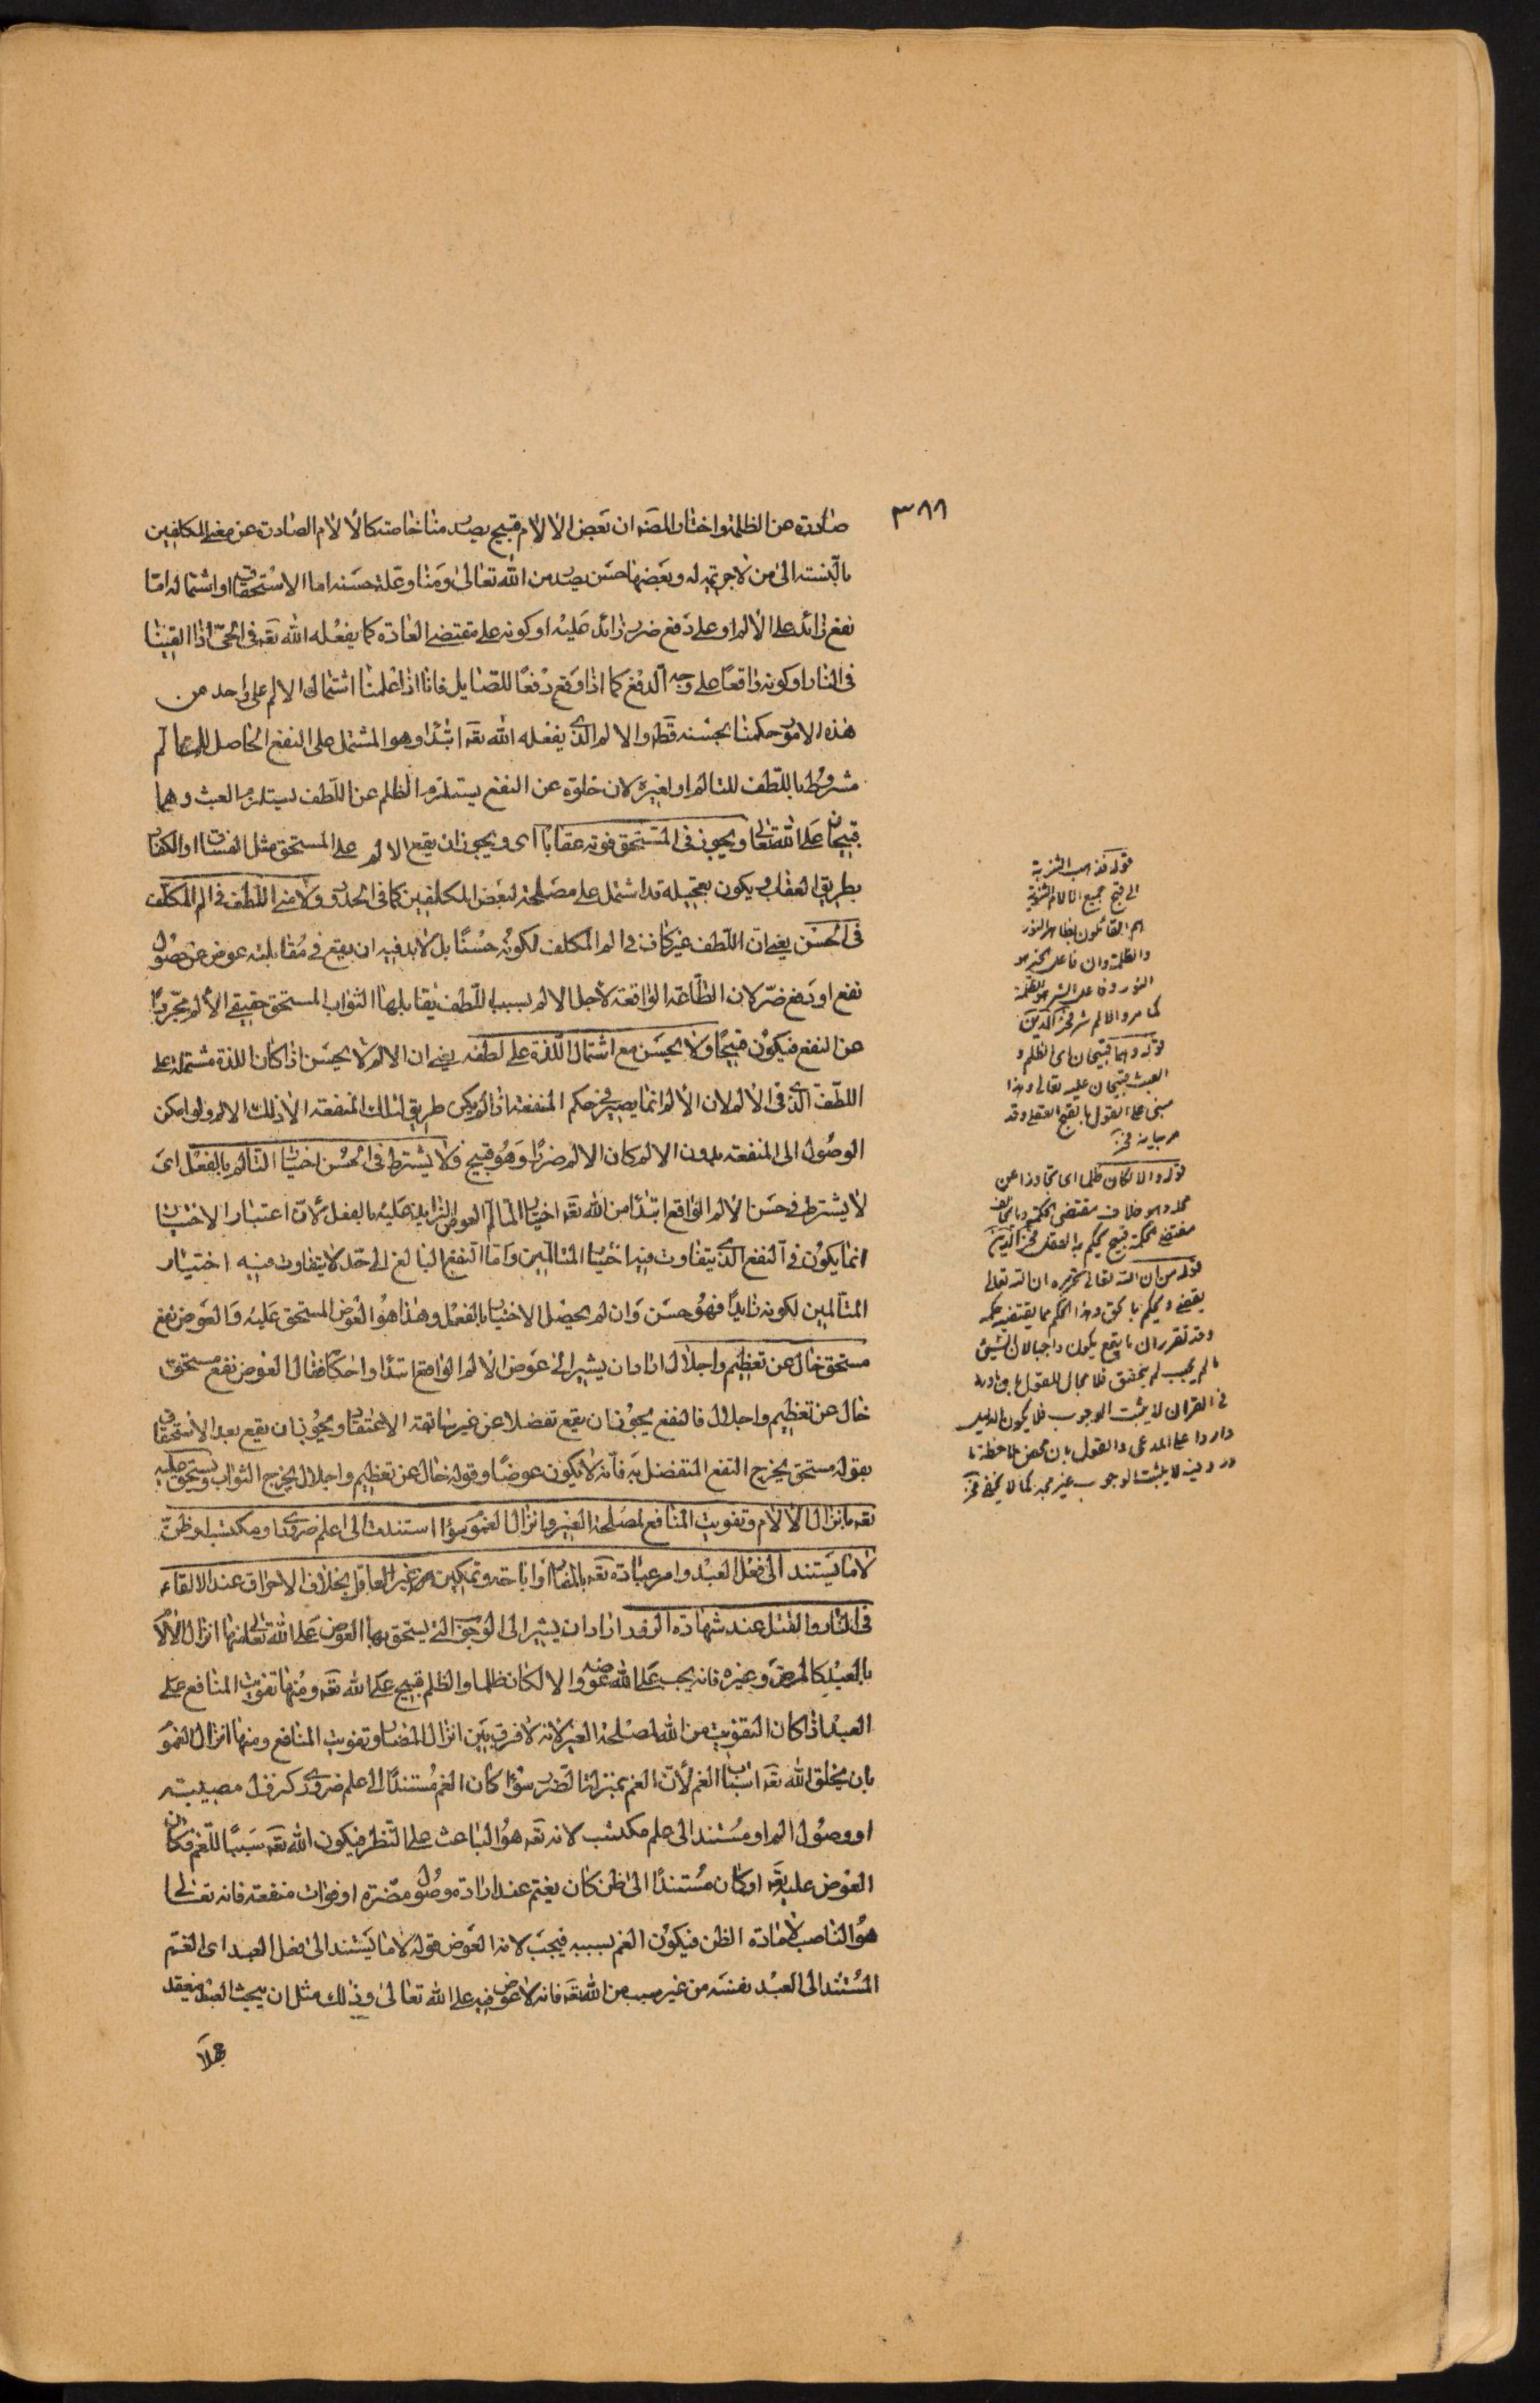 ٣٨٨
صادرة عن الظلمة واختار المصنف ان بعض الالام قبيح يصدر منا خاصة كالالام الصادرة عن بعض المكلفين
بالنسبة الى من لا جريمة له وبعضها حسن يصدر من الله تعالى ومنا وعلة حسنه اما الاستحقاق او اشتماله اما
نفع زائد على الالم او على دفع ضرر زائد عليه او كونه على مقتضى العادة كما يفعله الله تعه في الحي اذا القيناه
في النار او كونه واقعا على وجه الدفع كما اذا وقع دفعا للصايل فانا اذا علمنا اشتمال الالم على واحد من
هذه الامور حكمنا بحسنه قطعا والالم الذي يفعله الله تعه ابتداء وهو المشتمل على النفع الحاصل للمتالم
مشروط باللطف للمتالم او لغيره لان خلوه عن النفع يستلزم الظلم عن اللطف يستلزم العبث وهما
قبيحان على الله تعالى ويجوز في المستحق فوته عقابا اى ويجوز ان يقع الالم على المستحق مثل الفساق او الكفار
بطريق العقاب ويكون تعجيله قد اشتمل على مصلحة لبعض المكلفين كما في الحدود ولا يكفي اللطف في الم المكلف
في الحسن يعني ان اللطف غير كاف في الم المكلف لكونه حسنا بل لابد فيه ان يقع في مقابلته عوض عن حصول
نفع او دفع ضرر لان الطاعة الواقعة لاجل الالم بسبب اللطف يقابلها الثواب المستحق حقيقى الالم مجردا
عن النفع فيكون قبيحا ولا يحسن مع اشتمال اللذة على لطفه يعني ان الالم لا يحسن اذا كان اللذة مشتملة على
اللطف الذي في الالم لان الالم انما يصير في حكم المنفعة اذا لم يكن طريق لتلك المنفعة الا ذلك الالم ولو امكن
الوصول الى المنفعة بدون الالم كان الالم ضررا وهو قبيح ولا يشترط في الحسن اختيار التالم بالفعل اى
لا يشترط في حسن الالم الواقع ابتداء من الله تعه اختيار المتالم العوض الزايد عليه بالفعل لان اعتبار الاختيار
انما يكون في النفع الذي يتفاوت فيه اختيار المتالمين واما النفع البالغ الى حد لا يتفاوت فيه اختيار
المتالمين لكونه زايدا فهو حسن وان لم يحصل الاختيار بالفعل وهذا هو العوض المستحق عليه والعوض نفع
مستحق خال عن تعظيم واجلال اراد ان يشير الى عوض الالم الواقع ابتداء واحكامه فقال العوض نفع مستحق
خال عن تعظيم واجلال فالنفع يجوز ان يقع تفضلا عن غير سابقة الاستحقاق ويجوز ان يقع بعد الاستحقاق
بقوله مستحق يخرج النفع المتفضل به فانه لا يكون عوضا وقوله خال عن تعظيم واجلال يخرج الثواب ويستحق عليه
تعه بانزال الالام وتفويت المنافع لمصلحة الغير وانزال الغموم سواء استندت الى علم ضرورى او مكتسب او ظن
لا ما يستند الى فعل العبد وامر عباده تعه بالمضار او اباحته وتمكين غير العاقل بخلاف الاحراق عند الالقاء
في النار والقتل عند شهادة الزور اراد ان يشير الى الوجوه التي يستحق بها العوض على الله تعالى منها انزال الالام
بالعبد كالمرض وغيره فانه يجب على الله عوضه والا لكان ظلما والظلم قبيح على الله تعه ومنها تفويت المنافع على
العبد اذا كان التفويت من الله لمصلحة الغير لانه لا فرق بين انزال المضار وتفويت المنافع ومنها انزال الغموم
بان يخلق الله تعه اسباب الغم لان الغم بمنزلة الضرر سواء كان الغم مستندا الى علم ضرورى كنزول مصيبته
او وصول الم او مستند الى علم مكتسب لانه تعه هو الباعث على النظر فيكون الله تعه سببا للغم فكان
العوض عليه تعه او كان مستندا الى ظن كان يغتم عند امارة وصول مضرة او فوات منفعة فانه تعالى
هو الناصب لامارة الظن فيكون الغم بسببه فيجب لانه العوض قوله لا ما يستند الى فعل العبد اى الغم
المستند الى العبد نفسه من غير سبب من الله تعه فانه لا عوض فيه على الله تعالى وذلك مثل ان يبحث العبد فيعقد
جهلا
قوله فذهب الثنوية
الى قبح جميع الالام الثنوية
هم القائلون بالها النور
والظلمة وان فاعل الخير هو
النور وفاعل الشر هو الظلمة
كما مر والالم شر فخر الدين
قوله وهما قبيحان اى الظلم و
العبث قبيحان عليه تعالى وهذا
مبنى على القول بالقبح العقلى وقد
مر بيانه فخر
قوله والا لكان ظلما اى تجاوزا عن
محله وهو خلاف مقتضى الحكمة وما يخالف
مقتضى الحكمة قبيح يحكم به العقل فخر الدين
قوله من ان الله تعالى تحريره ان الله تعالى
يقضى ويحكم بالحق وهذا الحكم مما يقتضيه حكمه
وقد تقرر ان ما يقع يكون واجبا لان الشىء
ما لم يجب لم يتحقق فلا مجال للقول بان وروده
في القران لا يثبت الوجوب فلا يكون الدليل
واردا على المدعى والقول بان محض ملاحظة ما
ورد فيه لا يثبت الوجوب غير مجد كما لا يخفى فخر